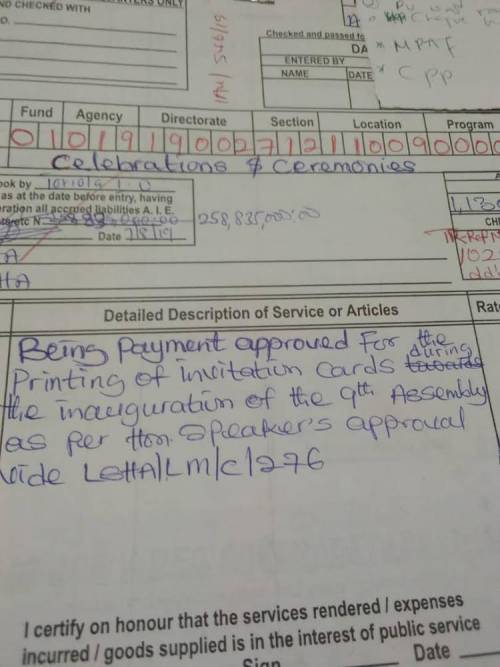 ND CHECKED WITH
Checked and passed fo
DA
ENTERED BY
NAME DATE
* MPAF
* CPP
Fund Agency Directorate Section Location Program
0 1 0 1 9 1 9 0 0 2 7 1 2 1 1 0 0 9 0 0 0 0
Celebrations & Ceremonies
ook by
as at the date before entry, having
eration all accrued liabilities A. I. E.
258,835,000:00
Date 7/8/19
HA
Detailed Description of Service or Articles Rate
Being Payment approved For the
Printing of invitation Cards during towards
the inauguration of the 9th Assembly
as per Hon. Speaker's approval
vide LSHA/LM/C/276
I certify on honour that the services rendered / expenses
incurred / goods supplied is in the interest of public service
Sign Date